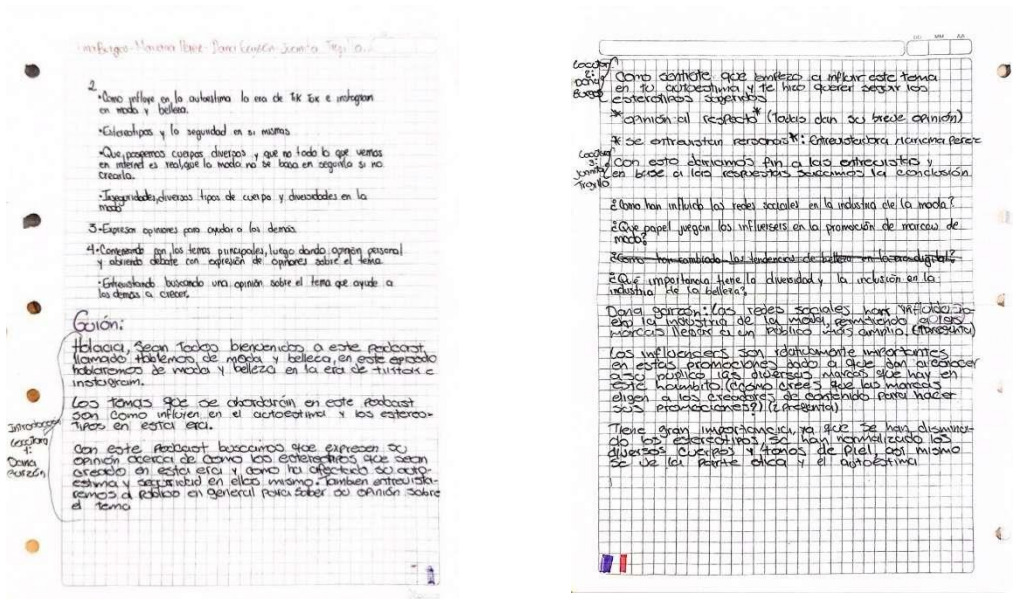 Burgos - Mariana Perez - Dana Garzón - Juanita Trujillo
2
•Como influye en la autoestima la era de tik tok e instagram
en moda y belleza.
•Estereotipos y la seguridad en si mismas
•Que, poseemos cuerpos diversos y que no todo lo que vemos
en internet es real, que la moda no se basa en seguirla si no
crearla.
•Inseguridades, diversos tipos de cuerpo y diversidades en la
moda
3-Expresar opiniones para ayudar a los demás
4-Comenzando con los temas principales, luego dando opinión personal
y abriendo debate con expresión de opiniones sobre el tema
•Entrevistando buscando una opinión sobre el tema que ayude a
los demás a crecer.
Guión:
Sean Todos bienvenidos a este Podcast
llamado Hablemos de moda y belleza, en este episodio
hablaremos de moda y belleza en la era de tiktok e
instagram.
Los temas que se abordarán en este Podcast
son Como influyen en el autoestima y los estereo-
tipos en esta era.
Introducción
Locutora
1:
Dana
Garzón
Con este Podcast buscamos que expresen su
opinión acerca de como los estereotipos que se an
creado en esta era y como ha afectado su auto-
estima y seguridad en ellos mismo. Tambien entrevista-
remos a Público en general para saber su opinión sobre
el tema
DD MM AA
Locutor
2:
Burgos
Como sentiste que empezo a influir este tema
en tu autoestima y te hizo querer seguir los
estereotipos sugeridos
*opinión al respecto* (Todas dan su breve opinión)
*Se entrevistan Personas*: Entrevistadora Mariana Perez
Locutora
3:
Juanita
Trujillo
Con esto dariamos fin a las entrevistas y
en base a las respuestas sacamos la conclusión
¿Como han influido las redes sociales en la industria de la moda?
¿Que papel juegan los influersers en la promoción de marcas de
moda?
¿Como han cambiado las tendencias de belleza en la era digital?
¿Qué importancia tiene la diversidad y la inclusión en la
industria de la belleza?
Dana garzon: Las redes sociales han influido
en la industria de la moda, permitiendo a las
marcas llegar a un Público más amplio. (Presenta)
Los influencers son importantes
en estas promociones dado a que dan a conocer
a su publico las diversas marcas que hay en
este hambito (¿Como crees que las marcas
eligen a los creadores de contenido para hacer
sus promociones?) (¿Pregunta)
Tiene gran importancia, ya que se han disminui-
do los estereotipos, se han normalizado los
diversos cuerpos y tonos de Piel, asi mismo
se ve la parte etica y el autoestima